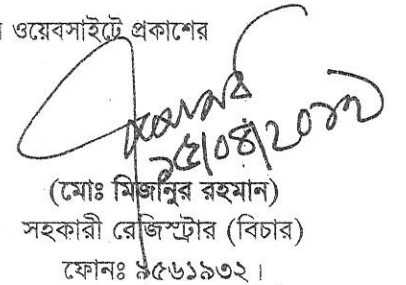 ওয়েবসাইটে প্রকাশের
(মোঃ মিজানুর রহমান)
সহকারী রেজিস্ট্রার (বিচার)
ফোনঃ ৯৫৬১৯৩২।